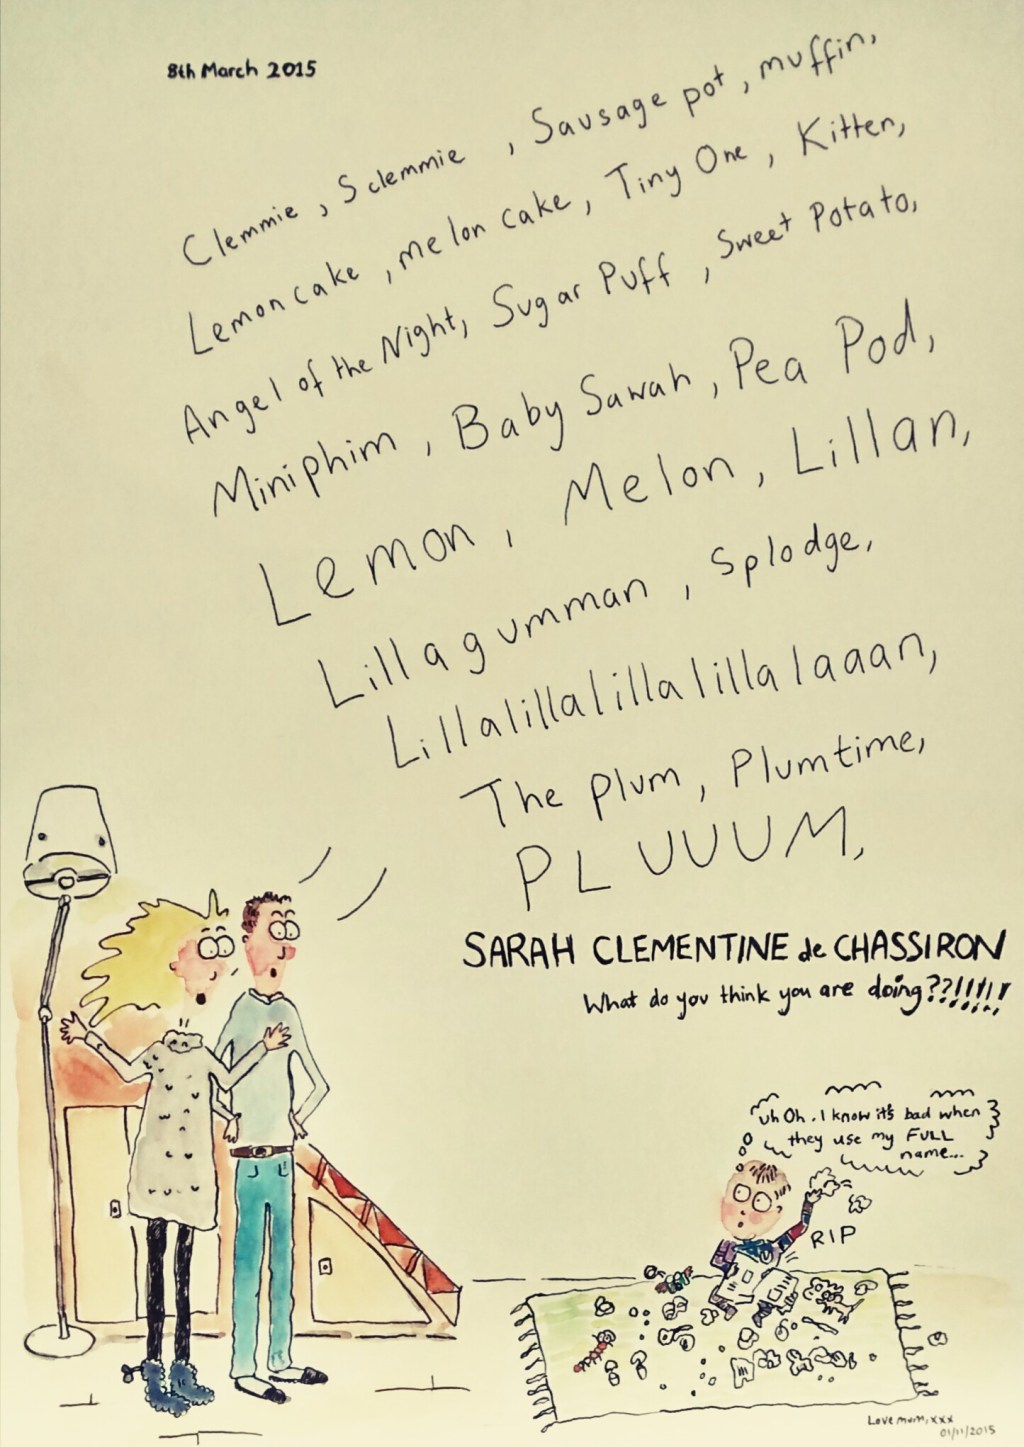 8th March 2015
Clemmie, Sclemmie, Sausage pot, muffin,
Lemoncake, melon cake, Tiny One, Kitten,
Angel of the Night, Sugar Puff, Sweet Potato,
Miniphim, Baby Sawah, Pea Pod,
Lemon, Melon, Lillan,
Lillagumman, Splodge,
Lillalillalillalillalaaan,
The plum, Plumtime,
PLUUUM,
SARAH CLEMENTINE de CHASSIRON
What do you think you are doing??!!!!!!
Uh Oh. I know it's bad when
they use my FULL
name...
RIP
Love mum, xxx
01/11/2015